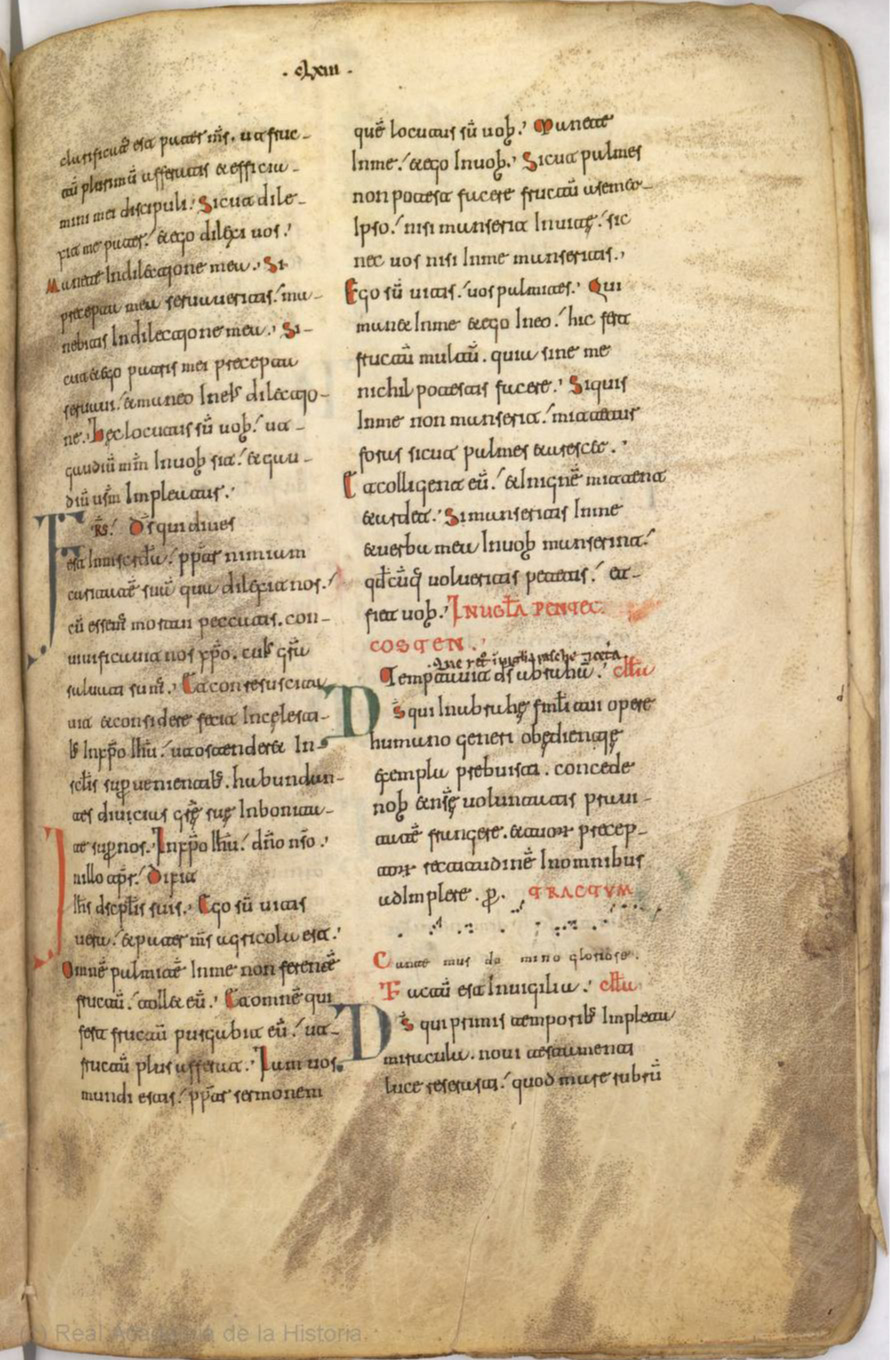 . clxiii .
clarificat̄ est pater m̄s. ut fruc-
tū plurimū afferatis & efficia-
mini mei discipuli. Sicut dile-
xit me pater. & ego dilexi uos.
Manete In dilectjone mea. Si
precepta mea seruaueritis. ma-
nebitis In dilectjone mea. Si-
cut & ego patris mei precepta
seruaui. & maneo In eiꝰ dilectjo-
ne. Hec locutus sū uob̄. ut
gaudiū mm̄ In uob̄ sit. & gau-
diū usm̄ Impleatur.
Frs̄. Ds̄ qui diues
est In misc̄dia. ppt̄er nimiam
caritatē suā qua dilexit nos.
cū essem̄ mortui peccatis. con-
uiuificauit nos xp̄o. cuiꝰ grā
saluati sumꝰ. Et conresuscita-
uit & considere fecit In cęlesti-
bꝰ In xp̄o Ihū. ut ostenderet In
sclīs suꝑuenientibꝰ. habundan-
tes diuicias grę̄ suę In bonita-
te suꝑ nos. In xp̄o Ihū. dn̄o nr̄o.
In illo tp̄r. Dixit
Ihs̄ dscplīs suis. Ego sū uitis
uera. & pater m̄s agricola est.
Omnē palmitē In me non ferentē
fructū. tollet eū. Et omnē qui
fert fructū purgabit eū. ut
fructū plus afferat. Iam uos
mundi estis. ppt̄er sermonem
quē locutus sū uob̄. Manete
In me. & ego In uob̄. Sicut palmes
non potest facere fructū a semet-
Ipso. nisi manserit In uitę. sic
nec uos nisi In me manseritis.
Ego sū uitis. uos palmites. Qui
manet In me & ego In eo. hic fert
fructū multū. quia sine me
nichil potestis facere. Siquis
In me non manserit. mittetur
foras sicut palmes & arescet.
Et colligent eū. & In ignē mittent
& ardet. Si manseritis In me
& uerba mea In uob̄ manserint.
qđcūq uolueritis petetis. et
fiet uob̄. IN UGLĪA PENTEC
COSTEN.
Temptauit ds̄ abraham. cllā
Ds̄ qui In abrahę famli tui opere
humano generi obędientię
exempla prebuisti. concede
nob̄ & nr̄ę uoluntatis praui-
tatē frangere. & tuoꝝ precep-
toꝝ rectitudinē In omnibus
adImplere. ꝑ. TRACTUM
Cantemus domino gloriose.
Factū est In uigilia. cllā
Ds̄ qui primis temporibꝰ Impleta
miracula. noui testamenti
luce reserasti. quod mare rubrū